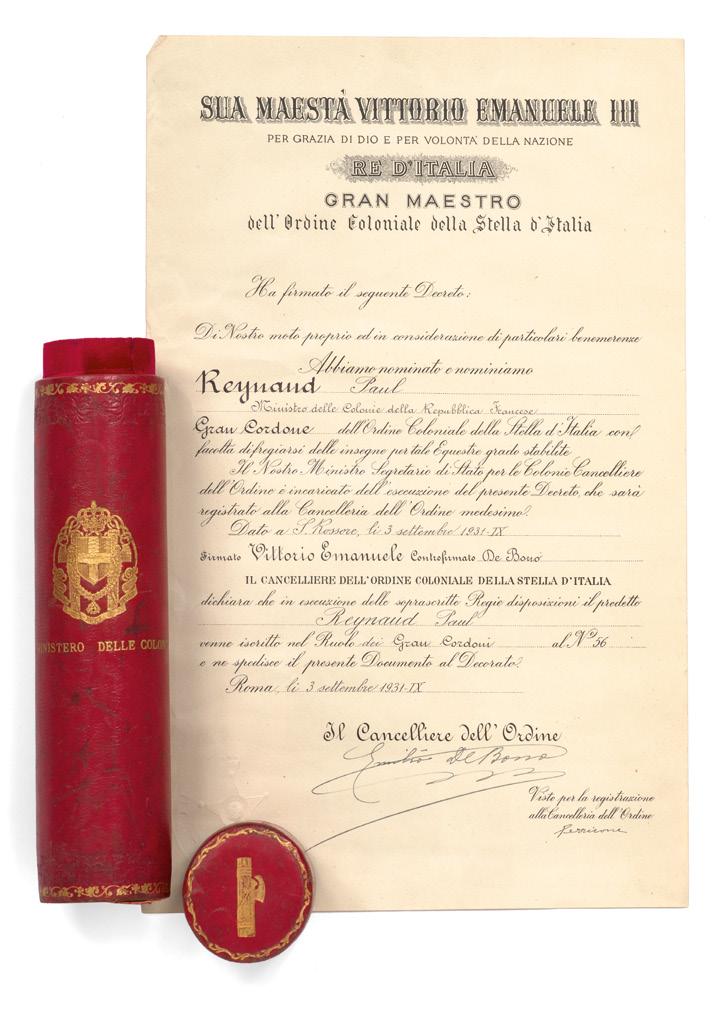 SUA MAESTÀ VITTORIO EMANUELE III
PER GRAZIA DI DIO E PER VOLONTA' DELLA NAZIONE
RE D'ITALIA
GRAN MAESTRO
dell'Ordine Coloniale della Stella d'Italia
Ha firmato il seguente Decreto:
Di Nostro moto proprio ed in considerazione di particolari benemerenze
Abbiamo nominato e nominiamo
Reynaud Paul
Ministro delle Colonie della Repubblica Francese
Gran Cordone dell'Ordine Coloniale della Stella d'Italia con
facoltà di fregiarsi delle insegne per tale Equestre grado stabilite.
Il Nostro Ministro Segretario di Stato per le Colonie Cancelliere
dell'Ordine è incaricato dell'esecuzione del presente Decreto, che sarà
registrato alla Cancelleria dell'Ordine medesimo.
Dato a S. Rossore, li 3 settembre 1931-IX
Firmato Vittorio Emanuele Controfirmato De Bono
IL CANCELLIERE DELL'ORDINE COLONIALE DELLA STELLA D'ITALIA
dichiara che in esecuzione delle soprascritte Regie disposizioni il predetto
Reynaud Paul
venne iscritto nel Ruolo dei Gran Cordoni al N.º 56
e ne spedisce il presente Documento al Decorato.
Roma, li 3 settembre 1931-IX
Il Cancelliere dell'Ordine
Emilio De Bono
Visto per la registrazione
alla Cancelleria dell'Ordine
MINISTERO DELLE COLON